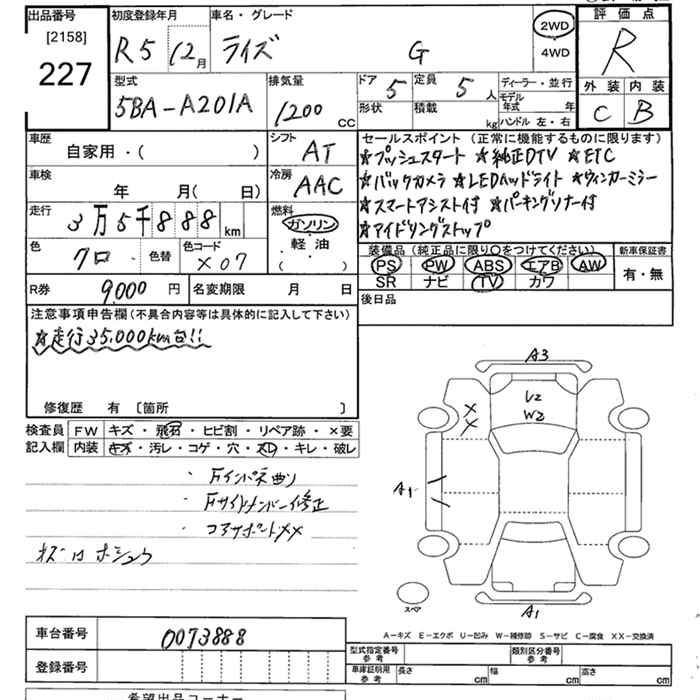 出品番号 初度登録年月 車名・グレード 評価点
[2158]
227
R5 12月 ライズ G 2WD 4WD R
型式 排気量 ドア 定員 ディーラー・並行 外装 内装
5BA-A201A 1200 CC 5 5人 モデル年式 年 C B
形状 積載 kg ハンドル 左・右
車歴 シフト セールスポイント (正常に機能するものに限ります)
自家用・( ) AT
★プッシュスタート ★純正DTV ★ETC
車検 冷房
年 月( 日) AAC
★バックカメラ ★LEDヘッドライト ★ウィンカーミラー
走行 燃料
3万5千888km ガソリン
★スマートアシスト付 ★パーキングソナー付
軽油
★アイドリングストップ
( )
色 色替 色コード 装備品 (純正品に限り○をつけてください) 新車保証書
クロ X07 PS PW ABS エアB AW 有・無
SR ナビ TV カワ
R券 9,000円 名変期限 月 日 後日品
注意事項申告欄 (不具合内容等は具体的に記入して下さい)
★走行35,000km台!!
修復歴 有 〔箇所 〕
A3
U2
W2
X
X
A1
A1
スペア
検査員 FW キズ・飛石・ヒビ割・リペア跡・×要
記入欄 内装 キズ・汚レ・コゲ・穴・スレ・キレ・破レ
・Fインパネ曲り
・Fサイドメンバー修正
・コアサポートXX
A-キズ E-エクボ U-凹み W-補修跡 S-サビ C-腐食 XX-交換済
車台番号 0073888
登録番号
型式指定番号 参考 類別区分番号 参考
車庫証明用 参考 長さ cm 幅 cm 高さ cm
希望出品コーナー